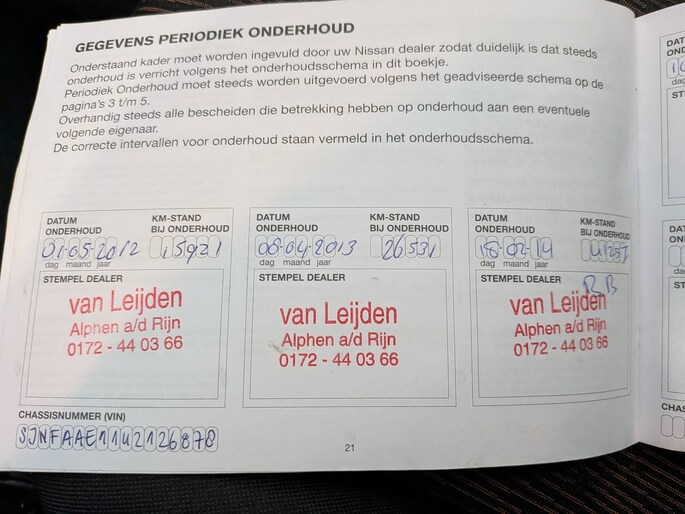 GEGEVENS PERIODIEK ONDERHOUD
Onderstaand kader moet worden ingevuld door uw Nissan dealer zodat duidelijk is dat steeds
onderhoud is verricht volgens het onderhoudsschema in dit boekje.
Periodiek Onderhoud moet steeds worden uitgevoerd volgens het geadviseerde schema op de
pagina's 3 t/m 5.
Overhandig steeds alle bescheiden die betrekking hebben op onderhoud aan een eventuele
volgende eigenaar.
De correcte intervallen voor onderhoud staan vermeld in het onderhoudsschema.
DATUM ONDERHOUD
KM-STAND BIJ ONDERHOUD
01-05-2012
15921
dag maand jaar
STEMPEL DEALER
van Leijden
Alphen a/d Rijn
0172 - 44 03 66
DATUM ONDERHOUD
KM-STAND BIJ ONDERHOUD
08-04-2013
26531
dag maand jaar
STEMPEL DEALER
van Leijden
Alphen a/d Rijn
0172 - 44 03 66
DATUM ONDERHOUD
KM-STAND BIJ ONDERHOUD
18-02-14
dag maand jaar
STEMPEL DEALER
RB
van Leijden
Alphen a/d Rijn
0172 - 44 03 66
CHASSISNUMMER (VIN)
SJNFAAE11U2126878
21